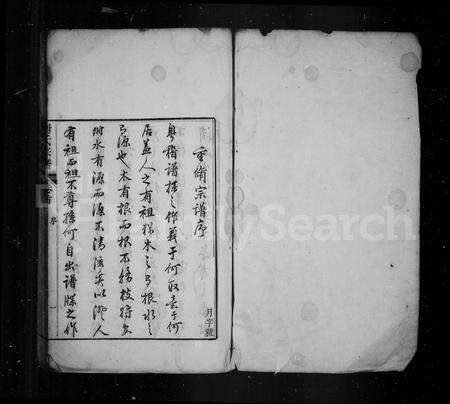 重脩宗譜序
粵稽譜牒之作義于何取意于何
居蓋人之有祖猶木之有根水之
有源也木有根而根不繙枝將安
附水有源而源不清流奚以衍人
有祖而祖不尊孫何自出譜牒之作
月字號
序
FamilySearch